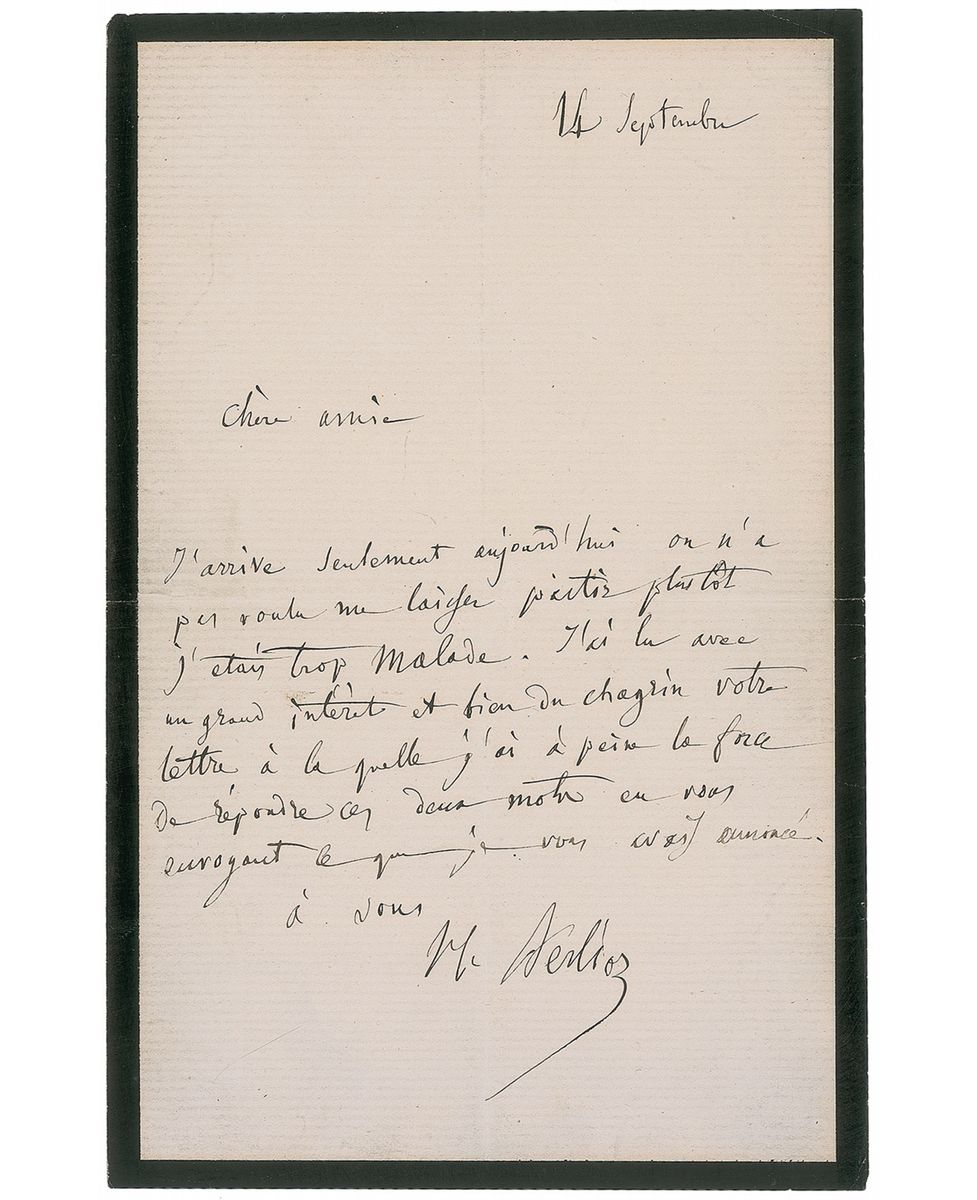 14 Septembre
Chère amie
J'arrive seulement aujourd'hui on n'a
pas voulu me laisser partir plustôt
j'etais trop malade. J'ai lu avec
un grand intérêt et bien du chagrin votre
lettre à la quelle j'ai à peine la force
de répondre ces deux mots en vous
envoyant ce que je vous avais annoncé.
à vous
H. Berlioz